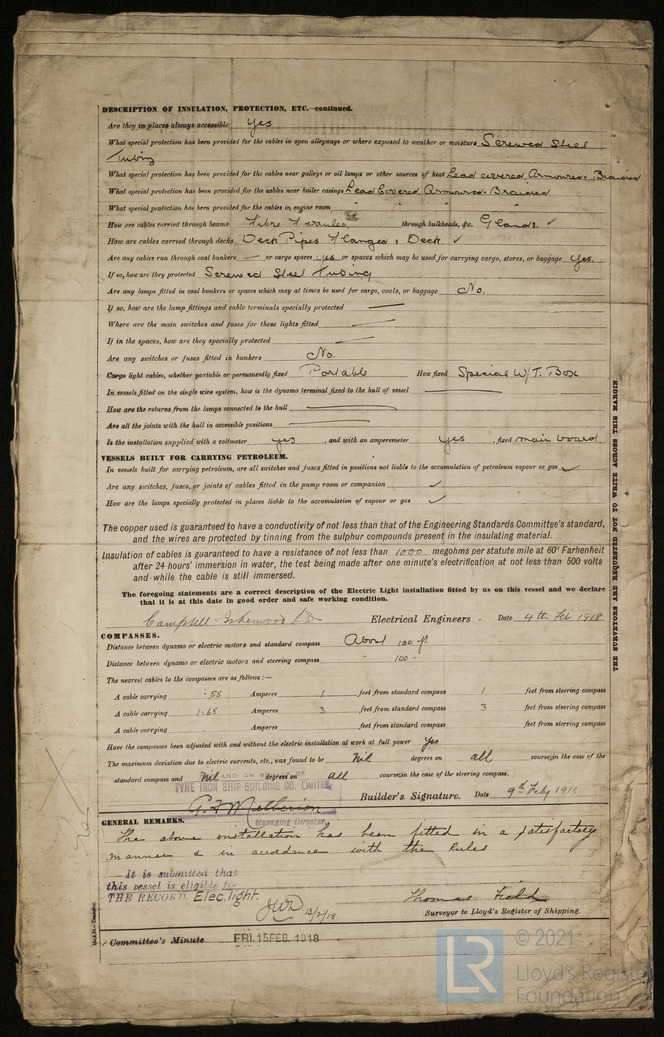 DESCRIPTION OF INSULATION, PROTECTION, ETC.—continued.
Are they in places always accessible Yes
What special protection has been provided for the cables in open alleyways or where exposed to weather or moisture Screwed Steel
Tubing
What special protection has been provided for the cables near galleys or oil lamps or other sources of heat Lead covered Armoured & Braided
What special protection has been provided for the cables near boiler casings Lead Covered Armoured & Braided
What special protection has been provided for the cables in engine room " " "
How are cables carried through beams Fibre Ferrules through bulkheads, &c. Glands. ✓
How are cables carried through decks Deck Pipes Flanged & Deck ✓
Are any cables run through coal bunkers — or cargo spaces yes or spaces which may be used for carrying cargo, stores, or baggage Yes.
If so, how are they protected Screwed Steel Tubing
Are any lamps fitted in coal bunkers or spaces which may at times be used for cargo, coals, or baggage No.
If so, how are the lamp fittings and cable terminals specially protected —
Where are the main switches and fuses for these lights fitted —
If in the spaces, how are they specially protected —
Are any switches or fuses fitted in bunkers No.
Cargo light cables, whether portable or permanently fixed Portable How fixed Special W/T. Box
In vessels fitted on the single wire system, how is the dynamo terminal fixed to the hull of vessel —
How are the returns from the lamps connected to the hull —
Are all the joints with the hull in accessible positions —
Is the installation supplied with a voltmeter yes , and with an amperemeter yes , fixed main board
VESSELS BUILT FOR CARRYING PETROLEUM.
In vessels built for carrying petroleum, are all switches and fuses fitted in positions not liable to the accumulation of petroleum vapour or gas ✓
Are any switches, fuses, or joints of cables fitted in the pump room or companion ✓
How are the lamps specially protected in places liable to the accumulation of vapour or gas ✓
The copper used is guaranteed to have a conductivity of not less than that of the Engineering Standards Committee's standard,
and the wires are protected by tinning from the sulphur compounds present in the insulating material.
Insulation of cables is guaranteed to have a resistance of not less than 1000 megohms per statute mile at 60° Farhenheit
after 24 hours' immersion in water, the test being made after one minute's electrification at not less than 500 volts
and while the cable is still immersed.
The foregoing statements are a correct description of the Electric Light installation fitted by us on this vessel and we declare
that it is at this date in good order and safe working condition.
Campbell & Isherwood Ld Electrical Engineers Date 4th Feb 1918
COMPASSES.
Distance between dynamo or electric motors and standard compass About 100 ft
Distance between dynamo or electric motors and steering compass " 100 "
The nearest cables to the compasses are as follows:—
A cable carrying .55 Amperes 1 feet from standard compass 1 feet from steering compass
A cable carrying 1.65 Amperes 3 feet from standard compass 3 feet from steering compass
A cable carrying Amperes feet from standard compass feet from steering compass
Have the compasses been adjusted with and without the electric installation at work at full power Yes
The maximum deviation due to electric currents, etc., was found to be Nil degrees on all course in the case of the
standard compass and Nil degrees on all course in the case of the steering compass.
AND ON
TYNE IRON SHIP-BUILDING CO. LIMITED,
Builder's Signature. Date 9th Feby 1918
Managing Director.
GENERAL REMARKS.
The above installation has been fitted in a satisfactory
manner & in accordance with the Rules
It is submitted that
this vessel is eligible for
THE RECORD Elec. light.
JWD 13/2/18
Thomas Field
Surveyor to Lloyd's Register of Shipping.
Committee's Minute FRI. 15 FEB. 1918
THE SURVEYORS ARE REQUESTED NOT TO WRITE ACROSS THIS MARGIN.
LR
© 2021
Lloyd's Register
Foundation